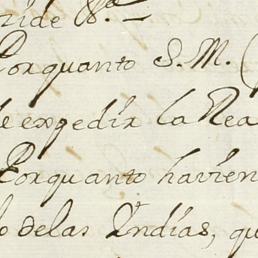 Porquanto S.M. (
de expedir la Rea
Porquanto havien
delas Indias, qu